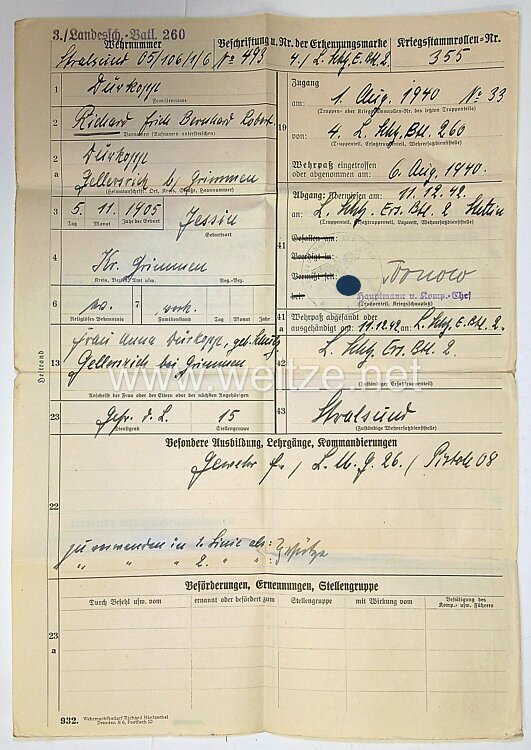 3./Landessch.-Batl. 260
Wehrnummer
Beschriftung u. Nr. der Erkennungsmarke
Kriegsstammrollen-Nr.
Stralsund 05/106/1/6
No 493
4./ L. Schtz. E. Btl. 2
355
1
Dürkopp
Familienname
2
Richard Erich Bernhard Robert
Vornamen (Rufnamen unterstreichen)
2
a
Dürkopp
bei Grimmen
(Heimatanschrift: Ort, Kreis, Straße, Hausnummer)
3
5.
11.
1905
Tag
Monat
Jahr der Geburt
Jessin
Geburtsort
4
Kr. Grimmen
Kreis, Bezirk, Amt usw.
Reg.-Bez.
6
ev.
7
verh.
Religiöses Bekenntnis
Familienstand
Tag, Monat, Jahr
13
Frau Anna Dürkopp, geb.
bei Grimmen
Anschrift der Frau oder der Eltern oder der nächsten Angehörigen
23
Gefr. d. L.
15
Dienstgrad
Stellengruppe
Heftrand
19
Zugang
am:
1. Aug. 1940
No 33
(Truppen- oder Kriegsstammrollen-Nr. des letzten Truppenteils)
von:
4. L. Schtz. Btl. 260
(Truppenteil, Ersatztruppenteil, Wehrersatzdienststelle)
Wehrpaß eingetroffen
oder abgenommen am:
6. Aug. 1940.
41
Abgang: Überwiesen am:
11.12.42.
an:
L. Schtz. Ers. Btl. 2 Stettin
(Truppenteil, Ersatztruppenteil, Lazarett, Wehrersatzdienststelle)
Gefallen am:
Beerdigt in:
Vermißt seit:
bei
Hauptmann u. Komp.-Chef
(Truppenteil, Kriegsschauplatz)
41
a
Wehrpaß abgesandt oder
ausgehändigt am:
11.12.42
an:
L. Schtz. E. Btl. 2.
42
L. Schtz. Ers. Btl. 2.
(Zuständiger Ersatztruppenteil)
43
Stralsund
(Zuständige Wehrersatzdienststelle)
www.weitze.net
Besondere Ausbildung, Lehrgänge, Kommandierungen
22
Gewehr / L. M. G. 26. / Pistole 08
zu verwenden in 1. Linie als: Schütze
" " " 2. " "
Beförderungen, Ernennungen, Stellengruppe
23
a
Durch Befehl usw. vom
ernannt oder befördert zum
Stellengruppe
mit Wirkung vom
Bestätigung des
Komp.- usw. Führers
932.
Wehrmachtbedarf Richard Mantzschel
Dresden N 6, Postfach 10